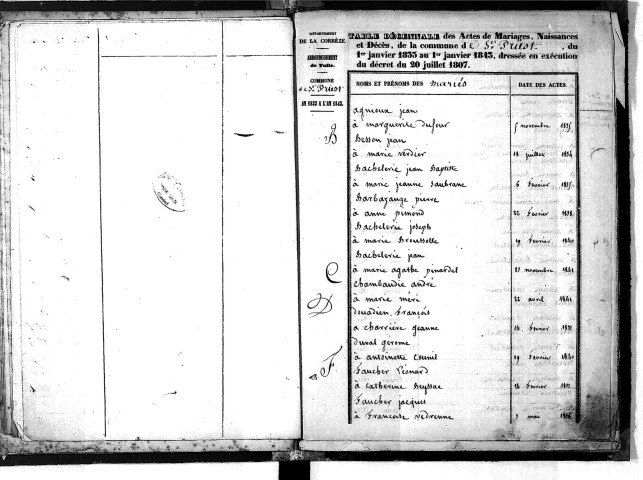 DÉPARTEMENT
DE LA CORRÈZE.
ARRONDISSEMENT
de Tulle.
COMMUNE
de St Priest
AN 1833 A L'AN 1843.
TABLE DÉCENNALE des Actes de Mariages, Naissances
et Décès, de la commune d e St Priest, du
1er janvier 1833 au 1er janvier 1843, dressée en exécution
du décret du 20 juillet 1807.
NOMS ET PRÉNOMS DES mariés
DATE DES ACTES.
agnieux jean
à marguerite dufour 5 novembre 1835
B
Besson jean
à marie verdier juillet 1834
Bachelerie jean Baptiste
à marie jeanne 6 février 1835
Barbazange pierre
à anne 22 février 1838
Bachelerie joseph
à marie Brousselle 19 février 1840
Bachelerie jean
à marie agathe pinardel 21 novembre 1841
C
chambaudie andré
à marie méré 22 avril 1841
D
François
à charrière jeanne février
duval gerome
à antoinette 19 février 1840
F
Faucher Léonard
à catherine Meyssac février
Faucher jacques
à Françoise vedrenne 7 mai 1836